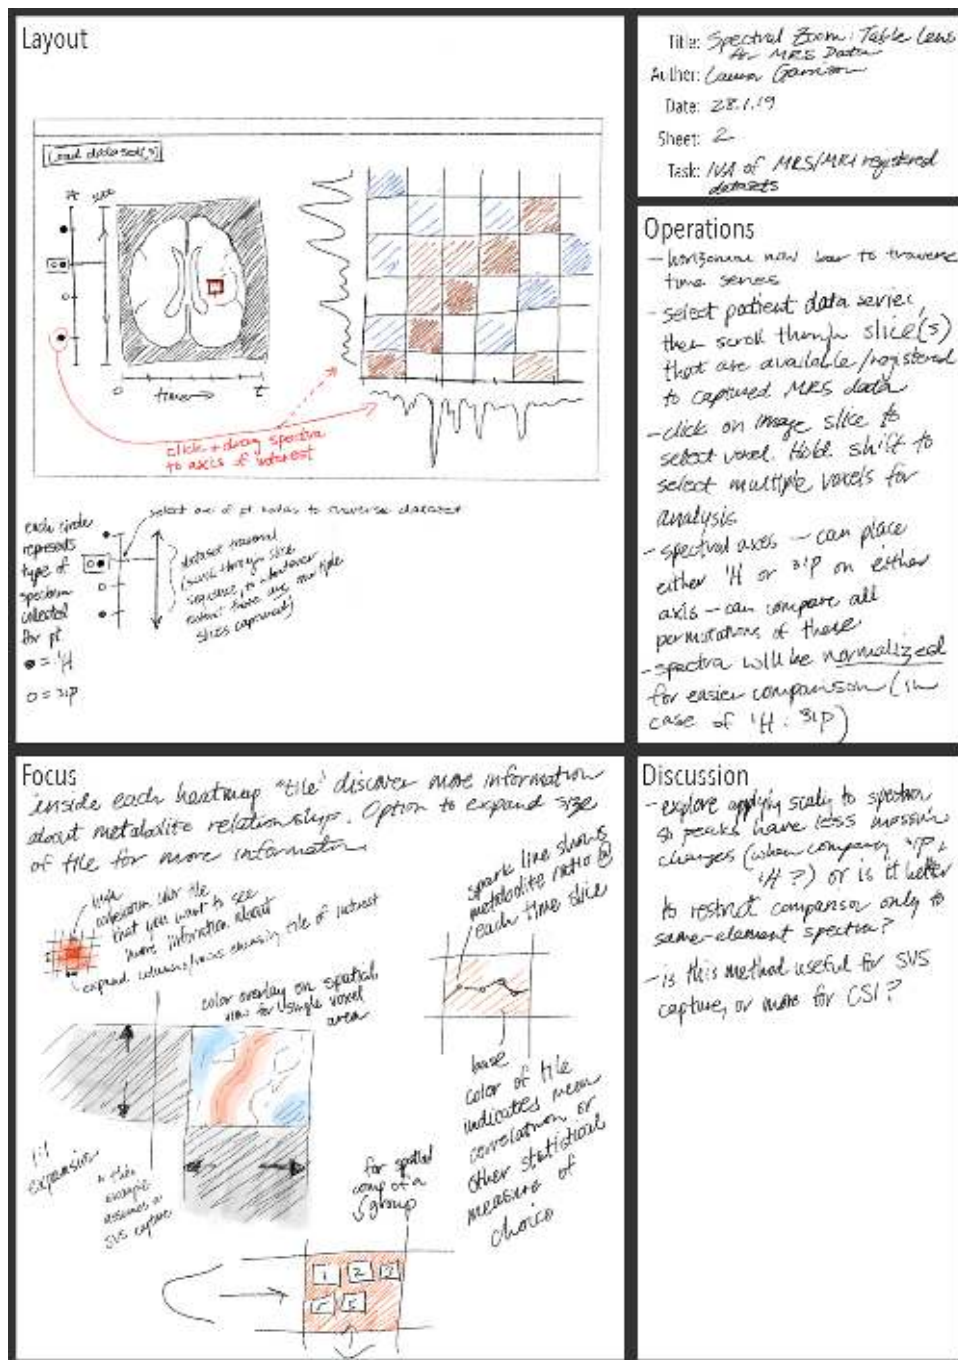 Layout
Load dataset(s)
Pt
0
time
t
click + drag spectra
to axis of interest
select one of pt nodes to traverse dataset
each circle
represents
type of
spectrum
collected
for pt
● = ¹H
○ = ³¹P
dataset traversal
(scroll through slice
sequence, to whatever
extent there are multiple
slices captured)
Title: Spectral Zoom: Table Lens
for MRS Data
Author: Laura Garrison
Date: 28.1.19
Sheet: 2
Task: IVA of MRS/MRI registered
datasets
Operations
- horizontal nav bar to traverse
time series
- select patient data series,
then scroll through slice(s)
that are available/registered
to captured MRS data
- click on image slice to
select voxel. Hold shift to
select multiple voxels for
analysis
- spectral axes - can place
either ¹H or ³¹P on either
axis - can compare all
permutations of these
- spectra will be normalized
for easier comparison (in
case of ¹H : ³¹P)
Focus
inside each heatmap "tile" discover more information
about metabolite relationships. Option to expand size
of tile for more information
high
correlation color tile
that you want to see
more information about
expand columns/rows crossing tile of interest
spark line shows
metabolite ratio @
each time slice
color overlay on spatial
view for single voxel
area
base
color of tile
indicates mean
correlation or
other statistical
measure of
choice
1:1
expansion
* this
example
assumes a
SVS capture
for spatial
comp of a
group
1 2 3
5
Discussion
- explore applying scaling to spectra
so peaks have less massive
changes (when comparing ³¹P
¹H?) or is it better
to restrict comparison only to
same-element spectra?
- is this method useful for SVS
capture, or more for CSI?